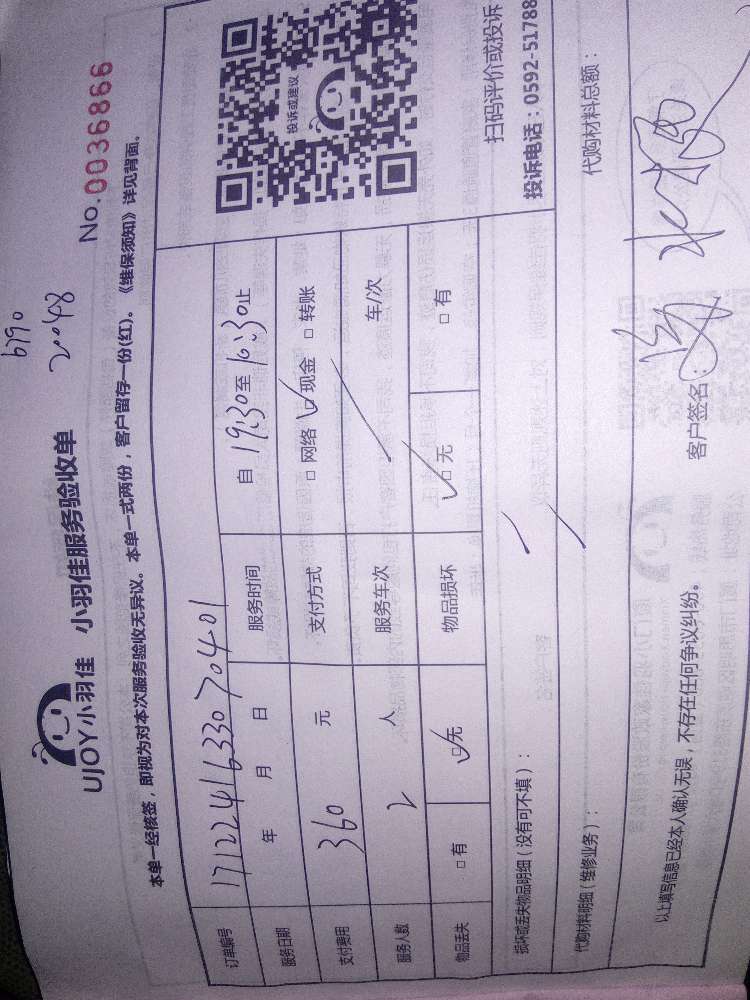 6190
20048
UJOY小羽佳 小羽佳服务验收单 No.0036866
本单一经核签，即视为对本次服务验收无异议。本单一式两份，客户留存一份(红)。《维保须知》详见背面。
订单编号 1712241633070401
服务日期 年 月 日 服务时间 自 19:30 至 16:30 止
支付费用 360 元 支付方式 □ 网络 ☑ 现金 □ 转账
服务人数 2 人 服务车次 / 车/次
物品丢失 □ 有 ☑ 无 物品损坏 ☑ 无 □ 有
投诉或建议
扫码评价或投诉
投诉电话：0592-51788
损坏或丢失物品明细（没有可不填）： /
代购材料明细（维修业务）： / 代购材料总额：
以上填写信息已经本人确认无误，不存在任何争议纠纷。 客户签名：